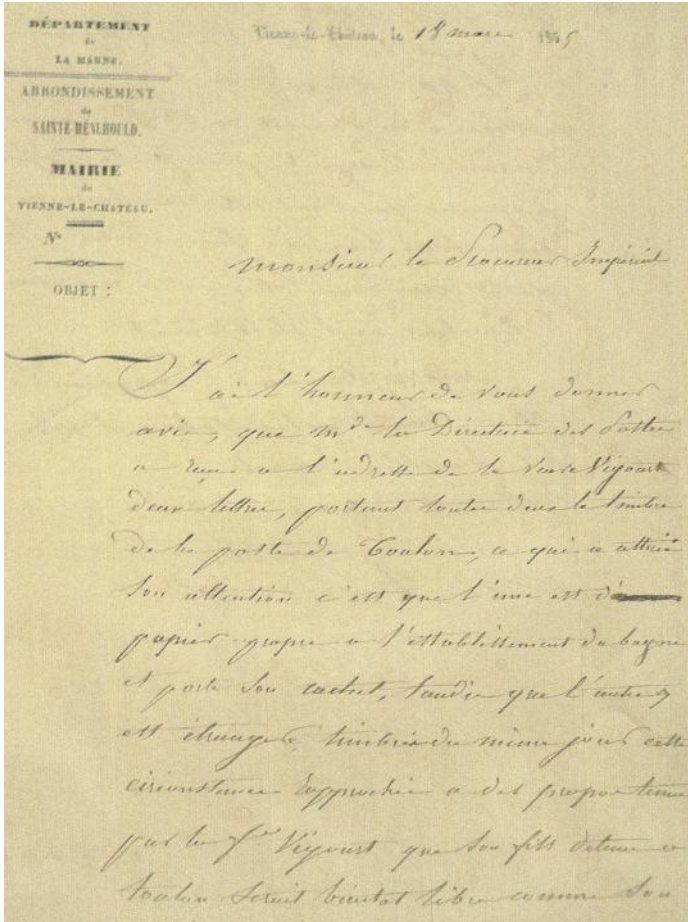 DÉPARTEMENT
de
LA MARNE.
ARRONDISSEMENT
de
SAINTE-MÉNEHOULD.
MAIRIE
de
VIENNE-LE-CHATEAU.
N°
OBJET :
Vienne-le-Château, le 18 mars 1865
Monsieur le Procureur Impérial
J'ai l'honneur de vous donner
avis, que Mde la Directrice des Postes
a reçu a l'adresse de la Veuve Vigourt
deux lettres, portant toutes deux le timbre
de la poste de Toulon, ce qui a attiré
son attention c'est que l'une est d
papier propre a l'établissement du bagne
et porte son cachet, tandis que l'autre y
est étranger, timbrée du même jour cette
circonstance rapprochée a des propos tenus
par la fe Vigourt que son fils détenu a
toulon serait bientôt libre comme son